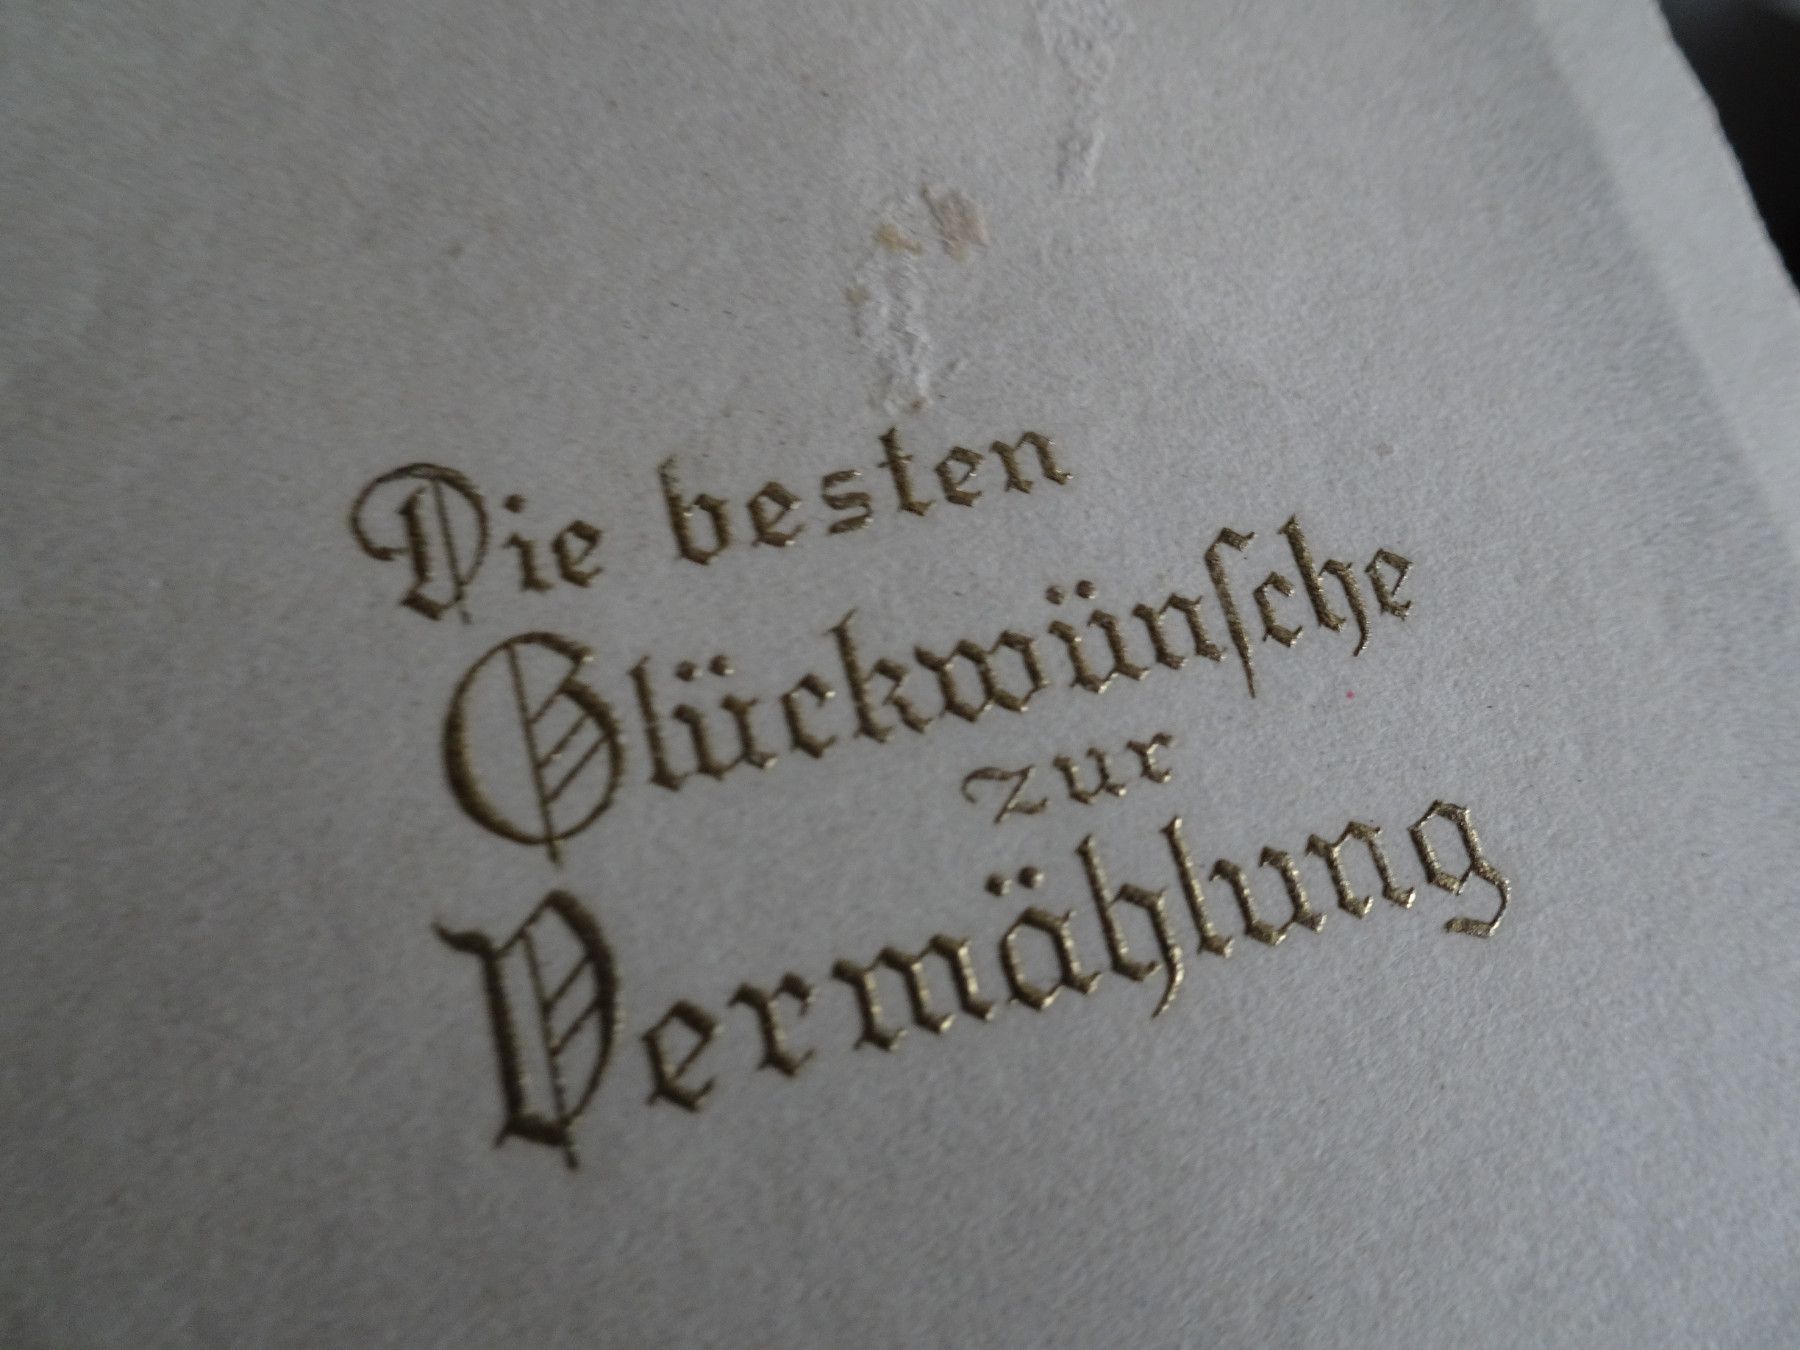 Die besten
Glückwünſche
zur
Vermählung